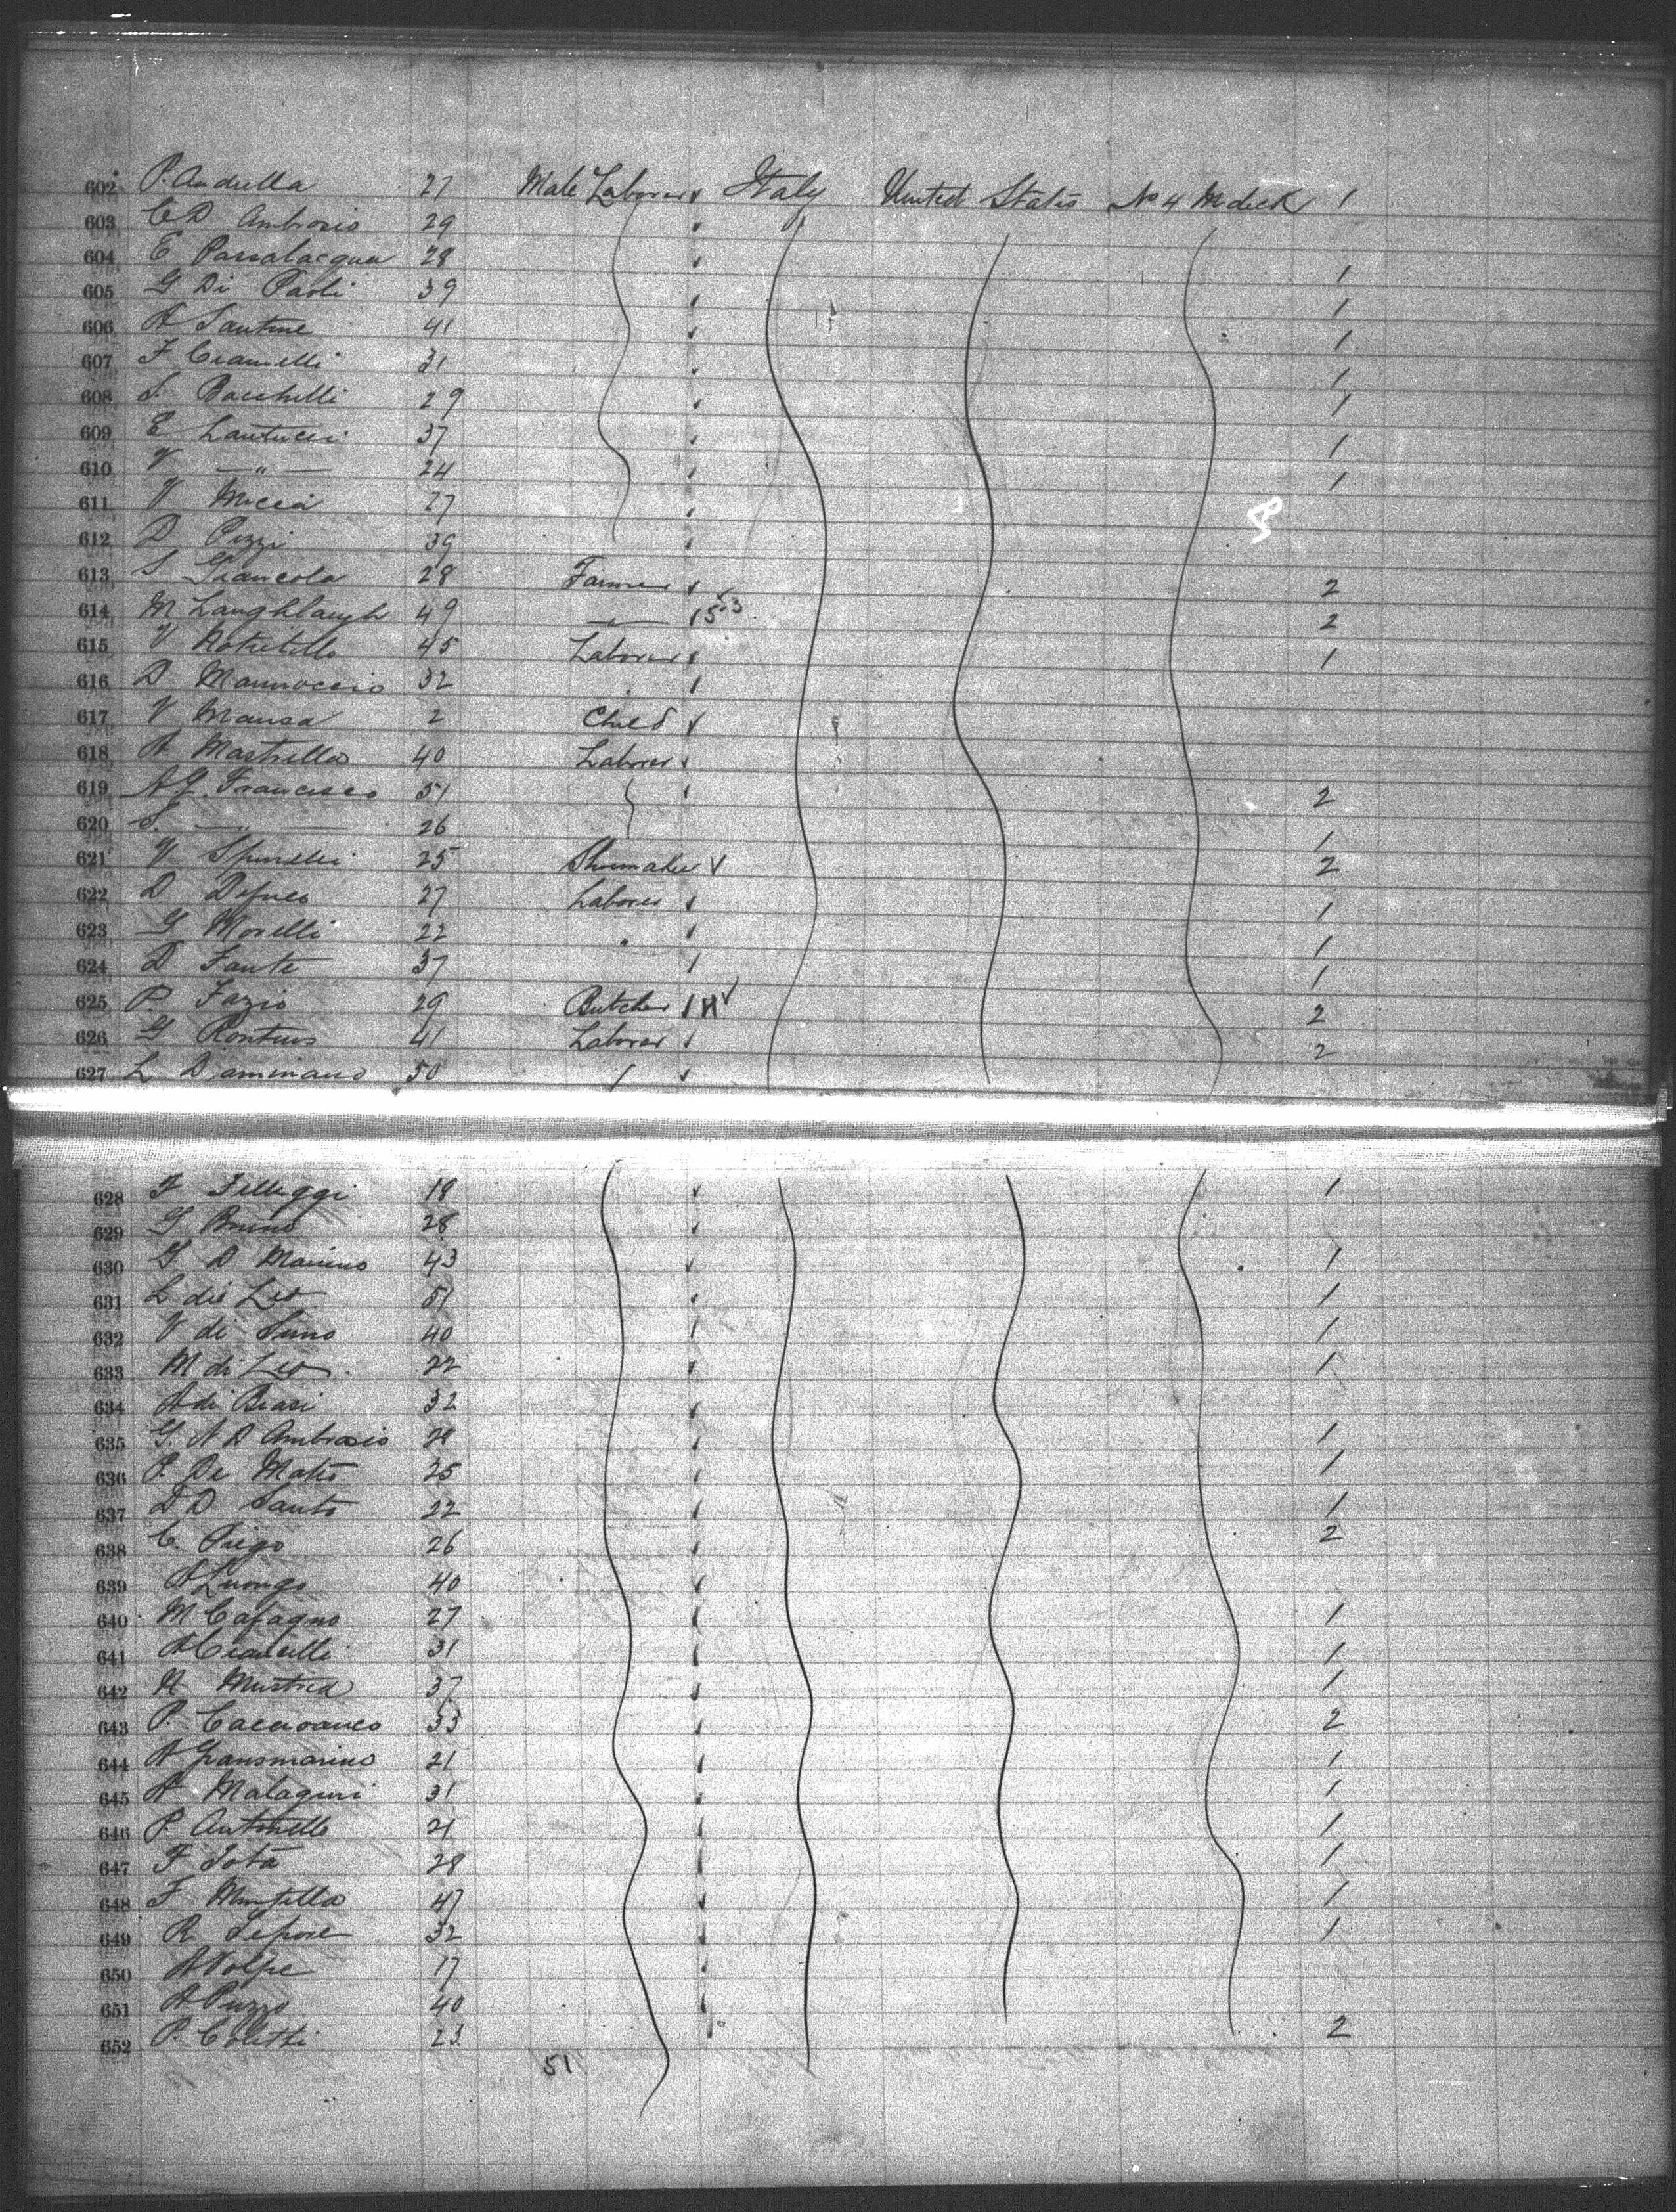 602 P. Andrella 27 Male Laborer Italy United States No 4 M deck 1
603 C D Ambrosio 29
604 E Passalacqua 28 1
605 G Di Paoli 39 1
606 A Santine 41 1
607 F Ciamelli 31 1
608 S. Bacchelli 29 1
609 E Santucci 37 1
610 V — " — 24 1
611 V Miccia 27
612 D Pizzi 39
613 S Giancola 28 Farmer 2
614 M Langhlaugh 49 — " — 2
615 V Notutillo 45 Laborer 1
616 D Mannoccio 32
617 V Mansa 2 Child
618 A Mastrella 40 Laborer
619 A G. Francesco 31 2
620 S. — " — 26 1
621 V Spinelli 25 Shumaker 2
622 D 27 Laborer 1
623 G Morelli 22 " 1
624 D. Fante 37 1
625 P. Fazio 29 Butcher H 2
626 G Rontino 41 Laborer 2
627 L Daminano 50
628 F Filleggi 18 1
629 G Bruno 28
630 G D Marino 43 1
631 L. die Leo 51 1
632 V di Simo 40 1
633 M di Leo 22 1
634 A di Biasi 32
635 G. N D Ambrosio 28 1
636 P. De Mateo 25 1
637 D D Santo 22 1
638 C. Priego 26 2
639 A Luongo 40
640 M Cafagno 27 1
641 A Ciancilli 31 1
642 N Mustica 37 1
643 P. Cacavanco 33 2
644 A Gransmarino 21 1
645 A Malaguri 31 1
646 P Antonello 21 1
647 F Iota 28 1
648 F 47 1
649 R Lepore 32 1
650 A Volpe 17
651 A Puzzo 40
652 P. Coletti 23 2
51